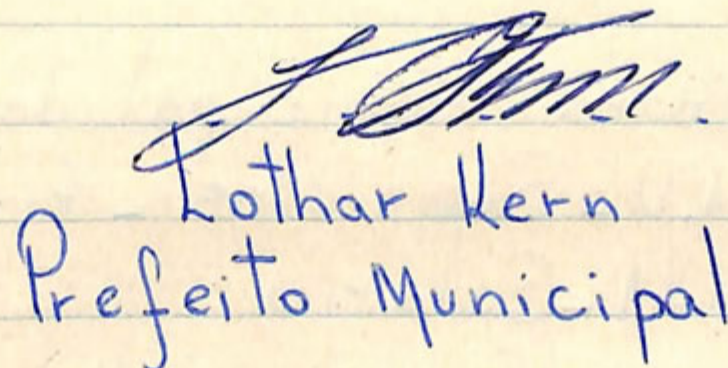 Lothar Kern
Prefeito Municipal